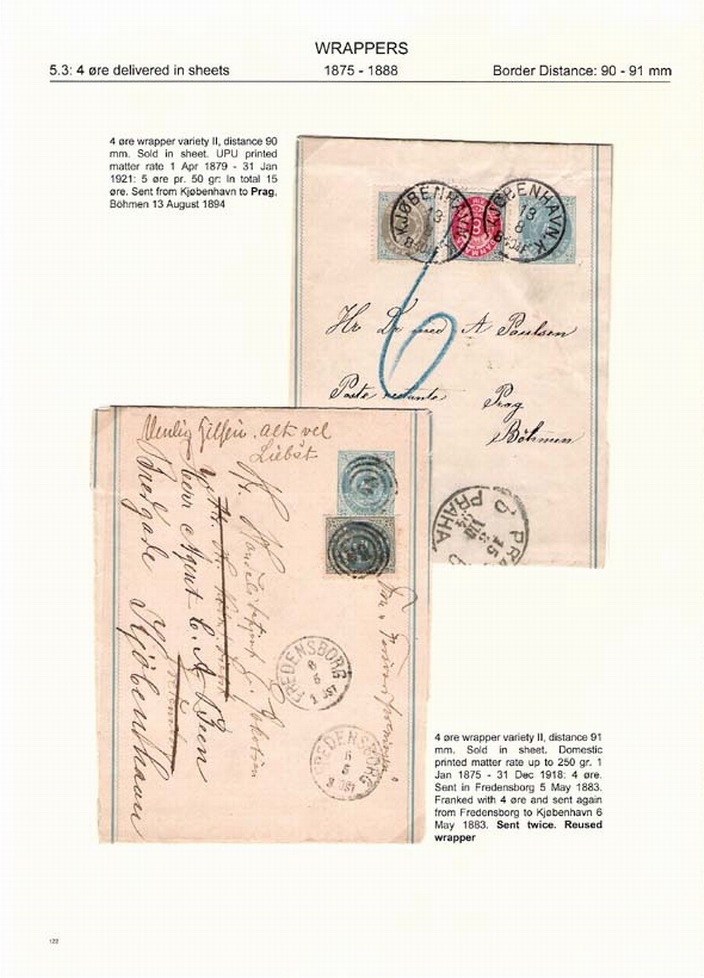 WRAPPERS
5.3: 4 øre delivered in sheets 1875 - 1888 Border Distance: 90 - 91 mm
4 øre wrapper variety II, distance 90
mm. Sold in sheet. UPU printed
matter rate 1 Apr 1879 - 31 Jan
1921: 5 øre pr. 50 gr: In total 15
øre. Sent from Kjøbenhavn to Prag,
Böhmen 13 August 1894
KJØBENHAVN.K.
13
8
KJØBENHAVN.K.
13
8
6
Hr Dr med A Paulsen
Poste restante Prag
Böhmen
PRAHA
15
Venlig Hilsen. alt vel
Herr Agent C. A.
Bredgade Kjøbenhavn
FREDENSBORG
6
5
FREDENSBORG
5
4 øre wrapper variety II, distance 91
mm. Sold in sheet. Domestic
printed matter rate up to 250 gr. 1
Jan 1875 - 31 Dec 1918: 4 øre.
Sent in Fredensborg 5 May 1883.
Franked with 4 øre and sent again
from Fredensborg to Kjøbenhavn 6
May 1883. Sent twice. Reused
wrapper
122